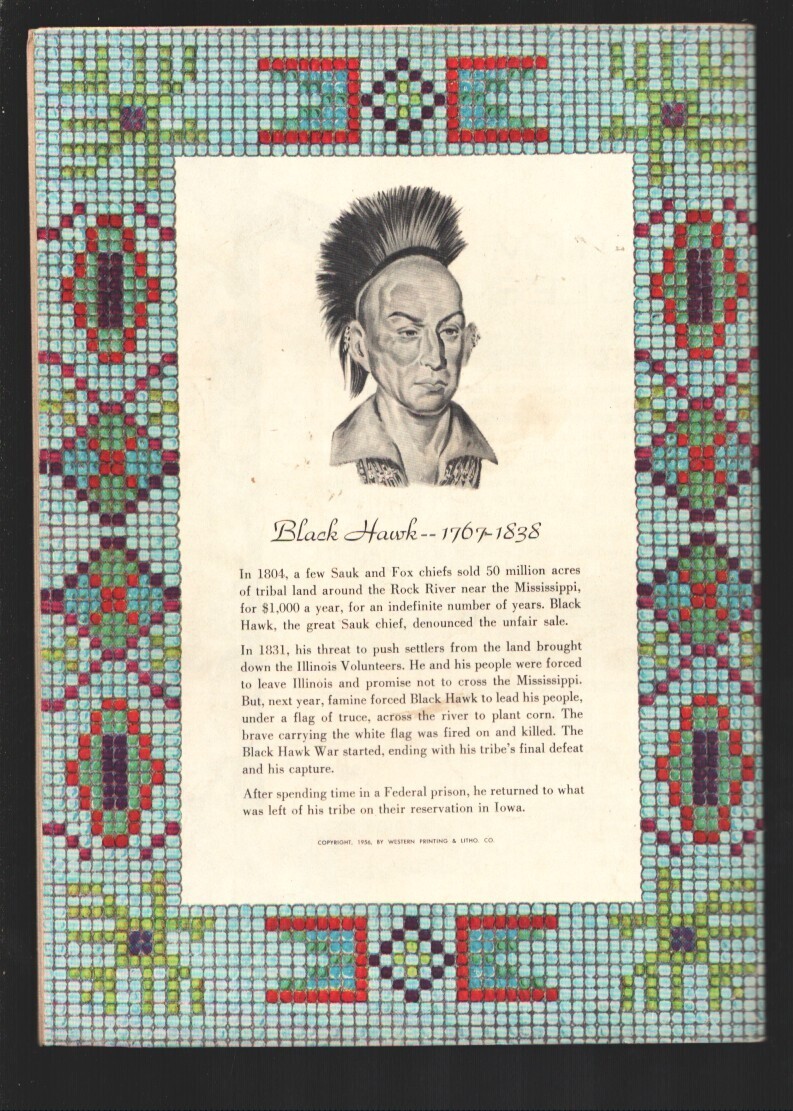 Black Hawk -- 1767-1838
In 1804, a few Sauk and Fox chiefs sold 50 million acres
of tribal land around the Rock River near the Mississippi,
for $1,000 a year, for an indefinite number of years. Black
Hawk, the great Sauk chief, denounced the unfair sale.
In 1831, his threat to push settlers from the land brought
down the Illinois Volunteers. He and his people were forced
to leave Illinois and promise not to cross the Mississippi.
But, next year, famine forced Black Hawk to lead his people,
under a flag of truce, across the river to plant corn. The
brave carrying the white flag was fired on and killed. The
Black Hawk War started, ending with his tribe's final defeat
and his capture.
After spending time in a Federal prison, he returned to what
was left of his tribe on their reservation in Iowa.
COPYRIGHT, 1956, BY WESTERN PRINTING & LITHO. CO.